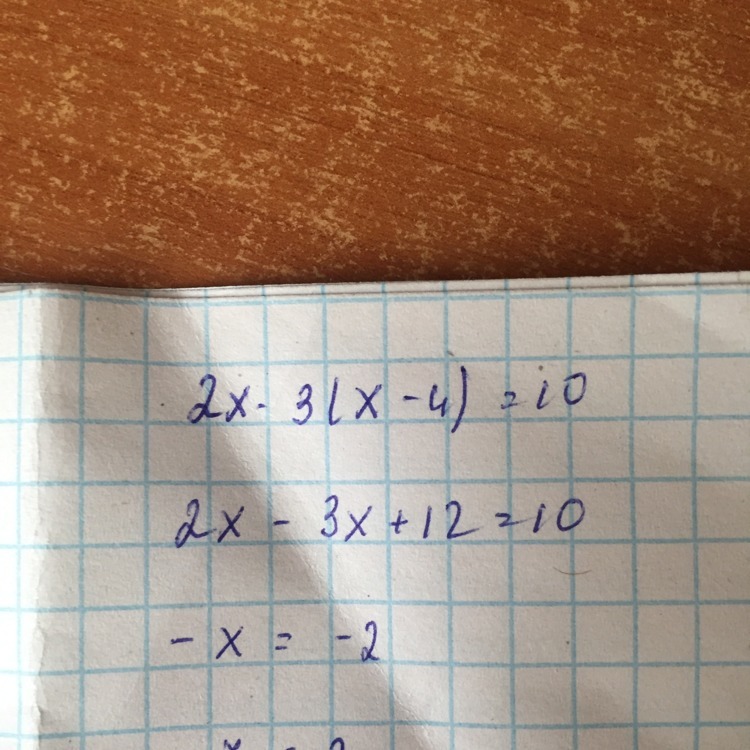 2x - 3(x - 4) = 10
2x - 3x + 12 = 10
- x = -2